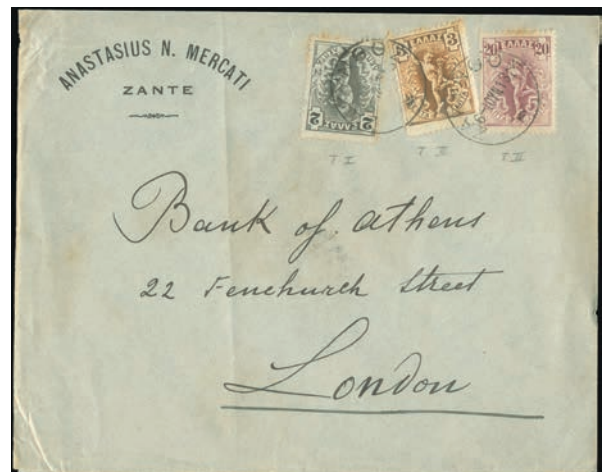 ANASTASIUS N. MERCATI
ZANTE
2 ΕΛΛΑΣ 2
3
20 ΕΛΛΑΣ 20
T I
T II
Bank of Athens
22 Fenchurch Street
London